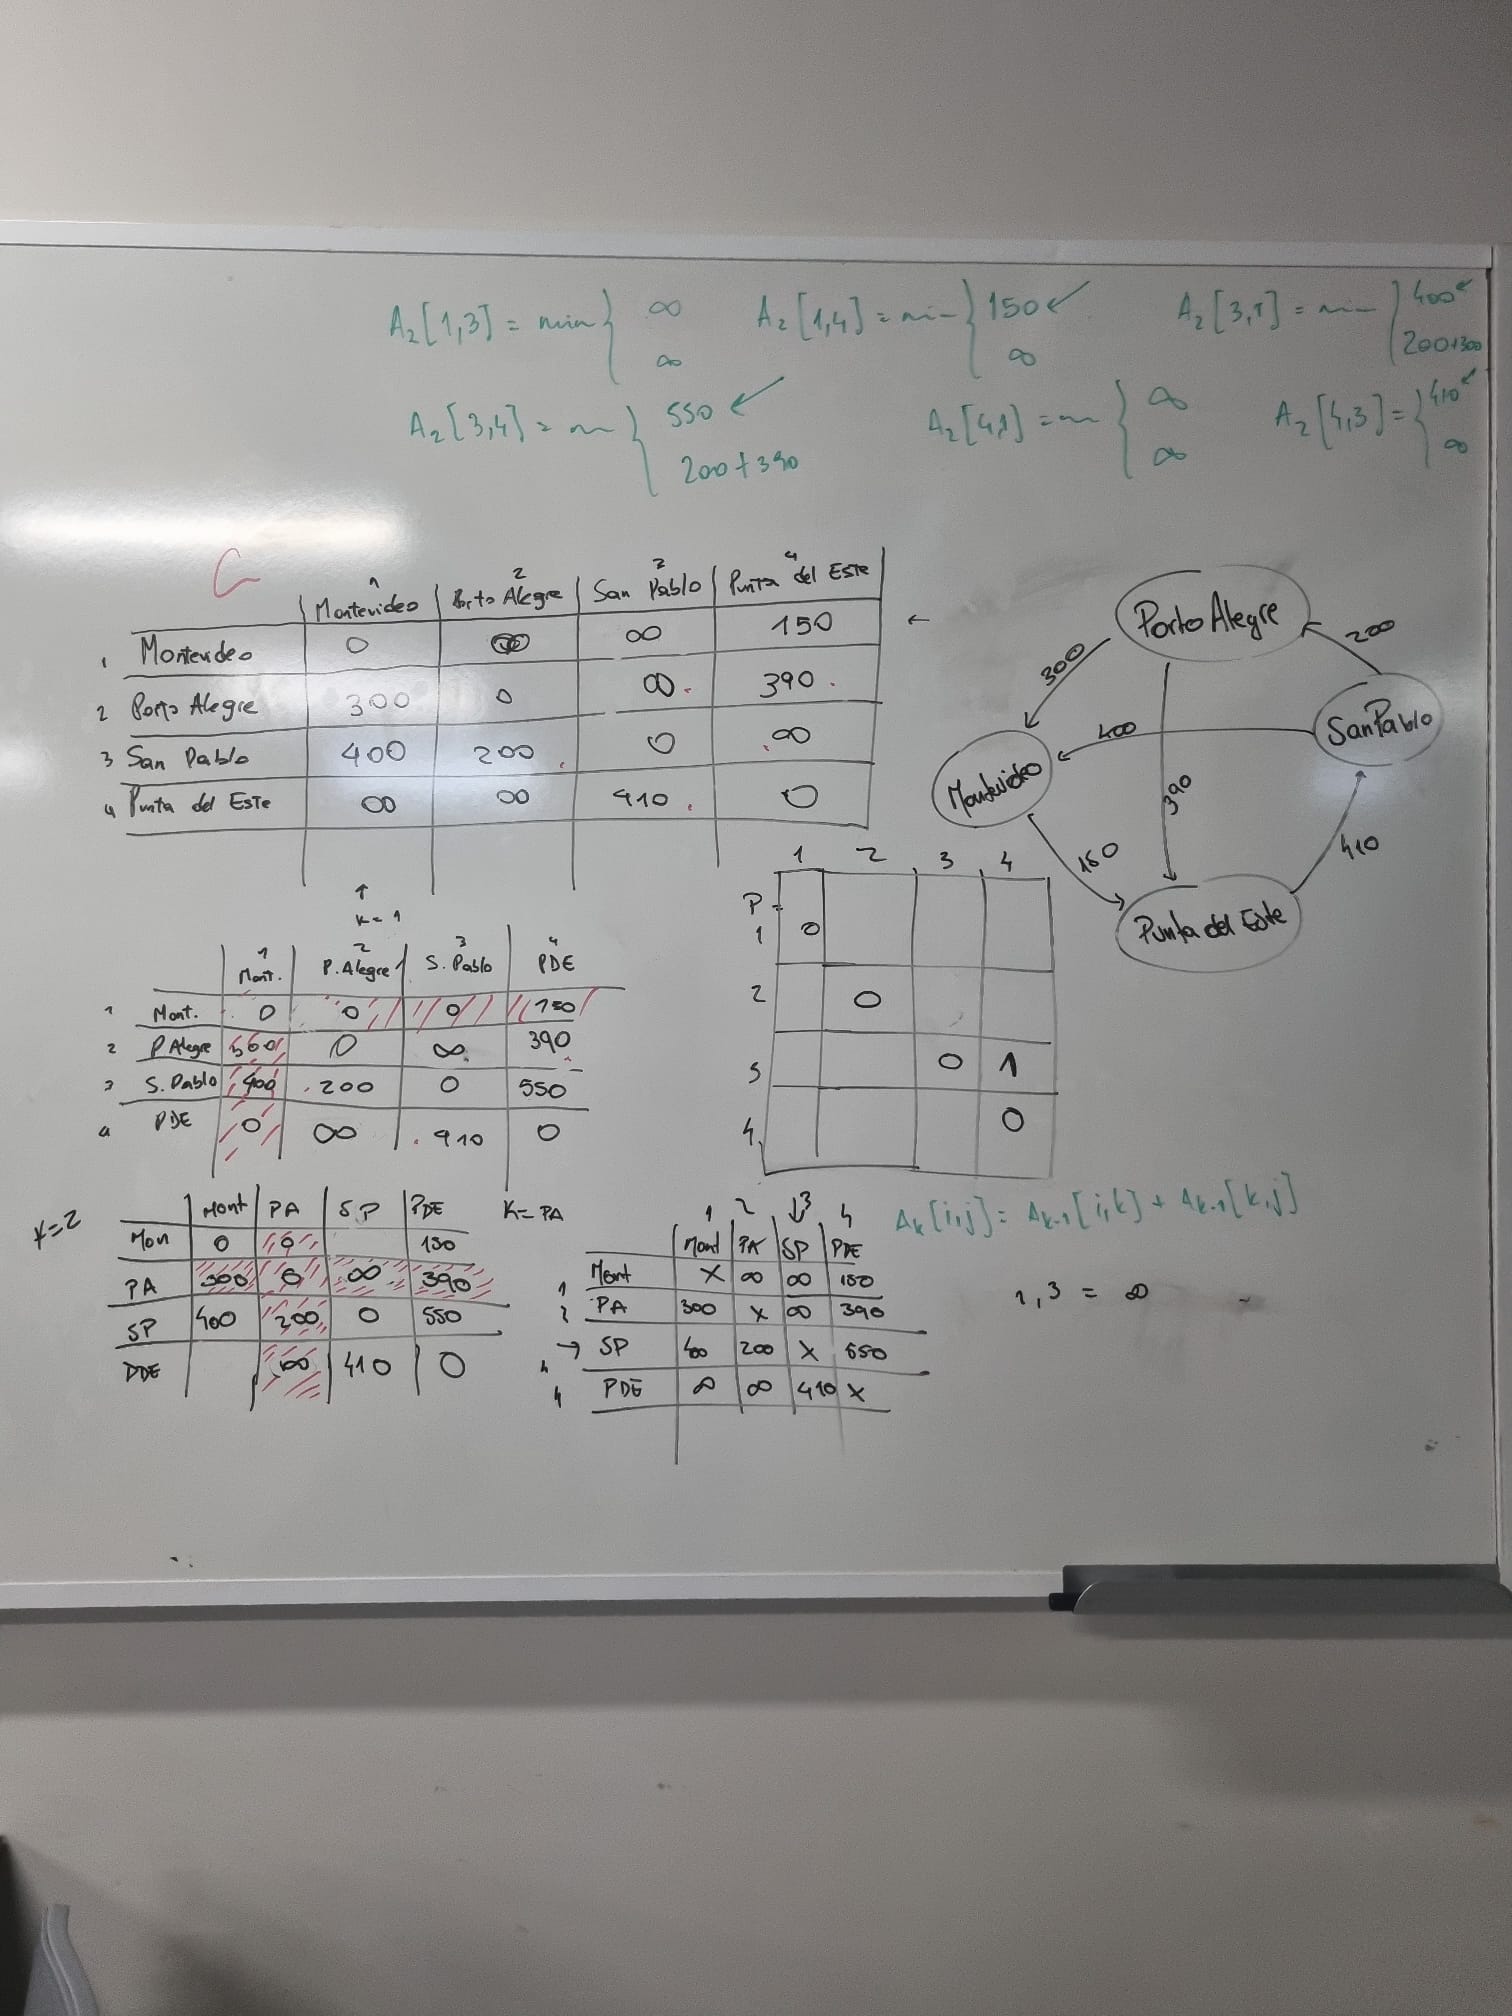 A₂[1,3] = min { ∞ ∞
A₂[1,4] = min { 150 ↙ ∞
A₂[3,1] = min { 400 ↙ 200+300
A₂[3,4] = m { 550 ↙ 200+390
A₂[4,1] = m { ∞ ∞
A₂[4,3] = { 410 ↙ ∞
C
1 2 3 4
Montevideo Porto Alegre San Pablo Punta del Este
1 Montevideo 0 ∞ ∞ 150 ←
2 Porto Alegre 300 0 ∞ 390
3 San Pablo 400 200 0 ∞
4 Punta del Este ∞ ∞ 410 0
↑
K=1
Porto Alegre
200
300
San Pablo
400
Montevideo
390
150
410
Punta del Este
1 2 3 4
Mont. P. Alegre S. Pablo PDE
1 Mont. 0 0 0 150
2 P Alegre 300 0 ∞ 390
3 S. Pablo 400 200 0 550
4 PDE 0 ∞ 410 0
1 2 3 4
P=
1 0
2 0
3 0 1
4 0
K=2
Mont PA SP PDE
Mon 0 0 150
PA 300 0 ∞ 390
SP 400 200 0 550
PDE ∞ 410 0
K= PA
1 2 ↓3 4
Mont PA SP PDE
1 Mont X ∞ ∞ 150
2 PA 300 X ∞ 390
→ SP 400 200 X 550
4 PDE ∞ ∞ 410 X
Aₖ[i,j] = Aₖ₋₁[i,k] + Aₖ₋₁[k,j]
1,3 = ∞